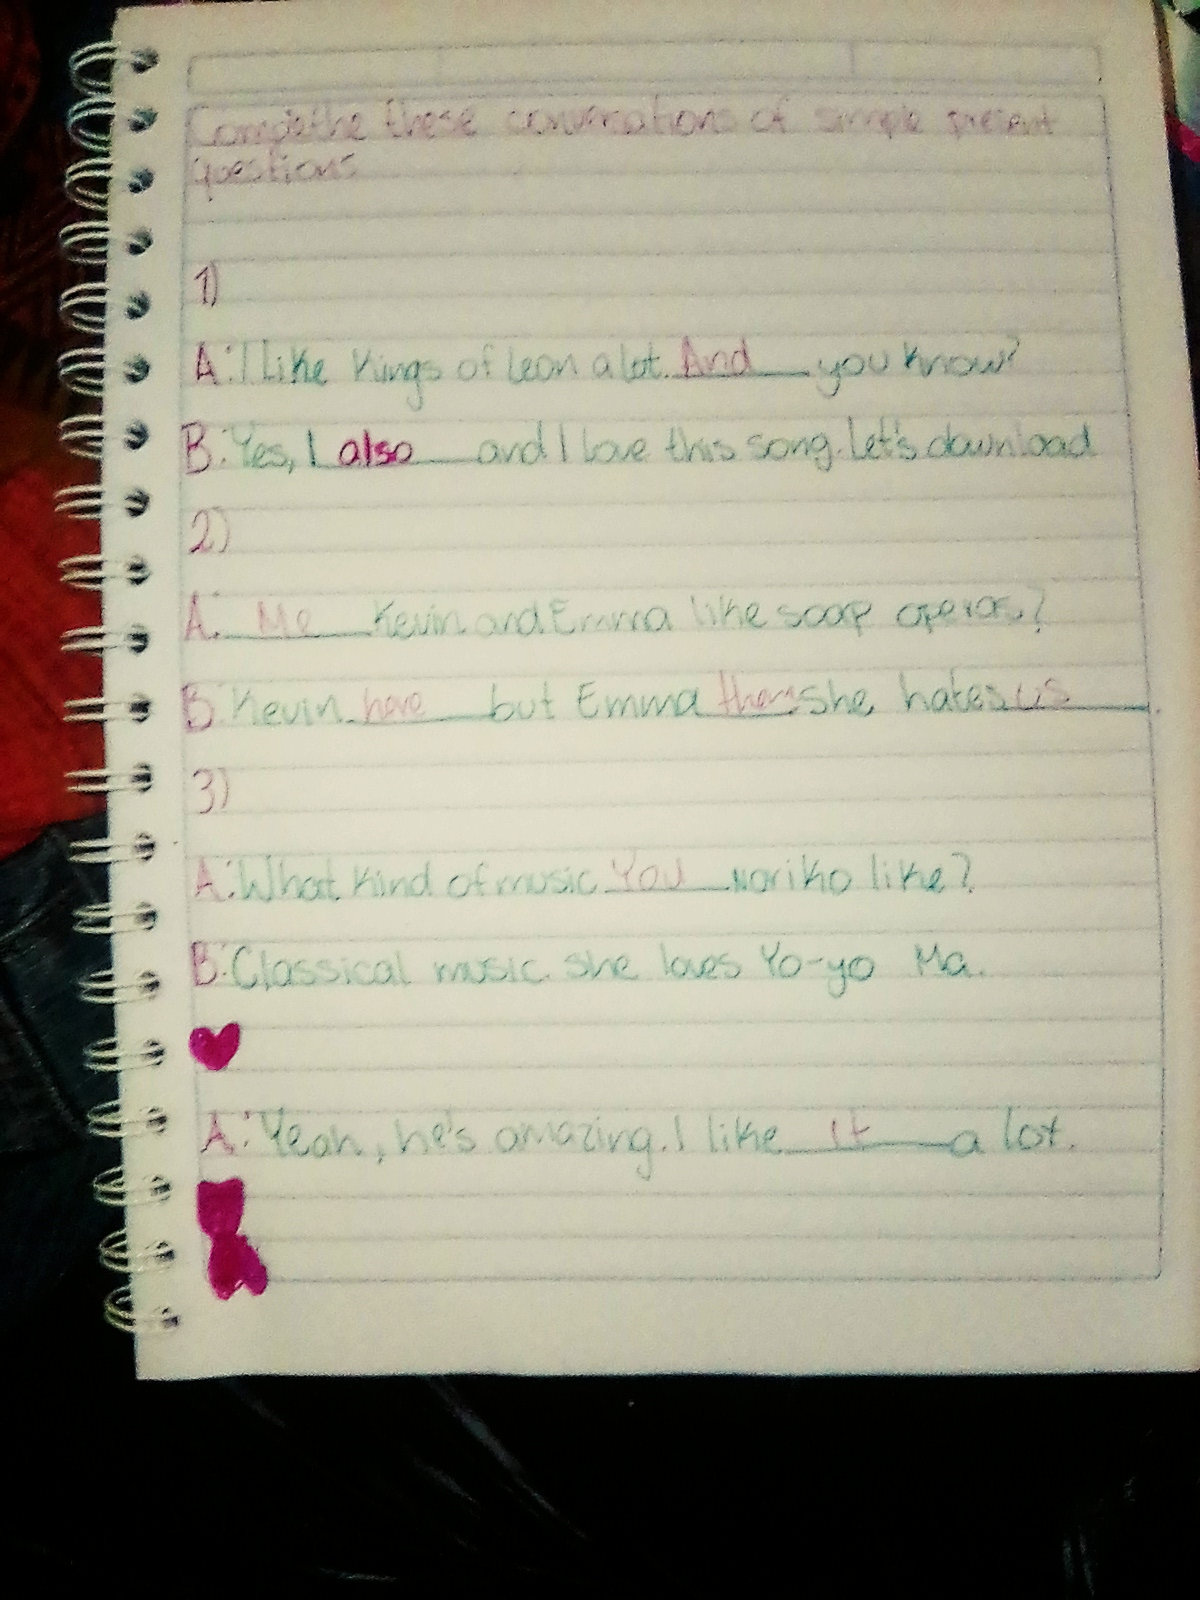 Complethe these conversations of simple present
questions
1)
A: I Like Kings of leon a lot. And you know?
B: Yes, I also and I love this song. Let's download
2)
A: Me Kevin and Emma like soap operas?
B: Kevin here but Emma them she hates us.
3)
A: What kind of music You Noriko like?
B: Classical music. she loves Yo-yo Ma.
A: Yeah, he's amazing. I like It a lot.